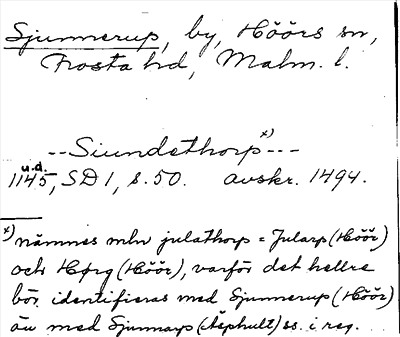 Sjunnerup, by, Höörs sn,
Frosta hd, Malm. l.
--Siundethorp x) ---
u.d.
1145, SD 1, s. 50. avskr. 1494.
x) nämnes mln julathorp = Jularp (Höör)
och Hørg (Höör), varför det hellre
bör identifieras med Sjunnerup (Höör)
än med Sjunnarp (Äsphult) ss. i reg.